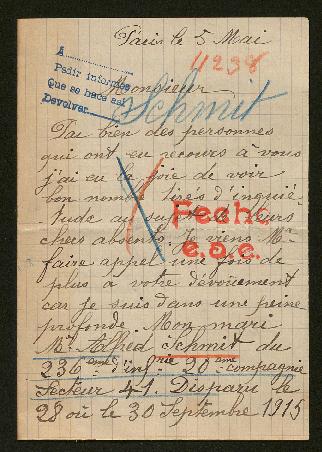 Paris le 5 Mai
4238
A
Pedir informes
Que se hace así
Devolver
Monsieur
Schmit
Par bien des personnes
qui ont eu recours à vous
j'ai eu la joie de voir
bon nombre tirés d'inquié-
tude au sujet de leurs
chers absents. Je viens Mr
faire appel une fois de
plus à votre dévouement
car je suis dans une peine
profonde. Mon mari
Mr Alfred Schmit du
236 ème d'infrie 20 ème compagnie
Secteur 41. Disparu le
28 où le 30 Septembre 1915
Feche
c.o.c.